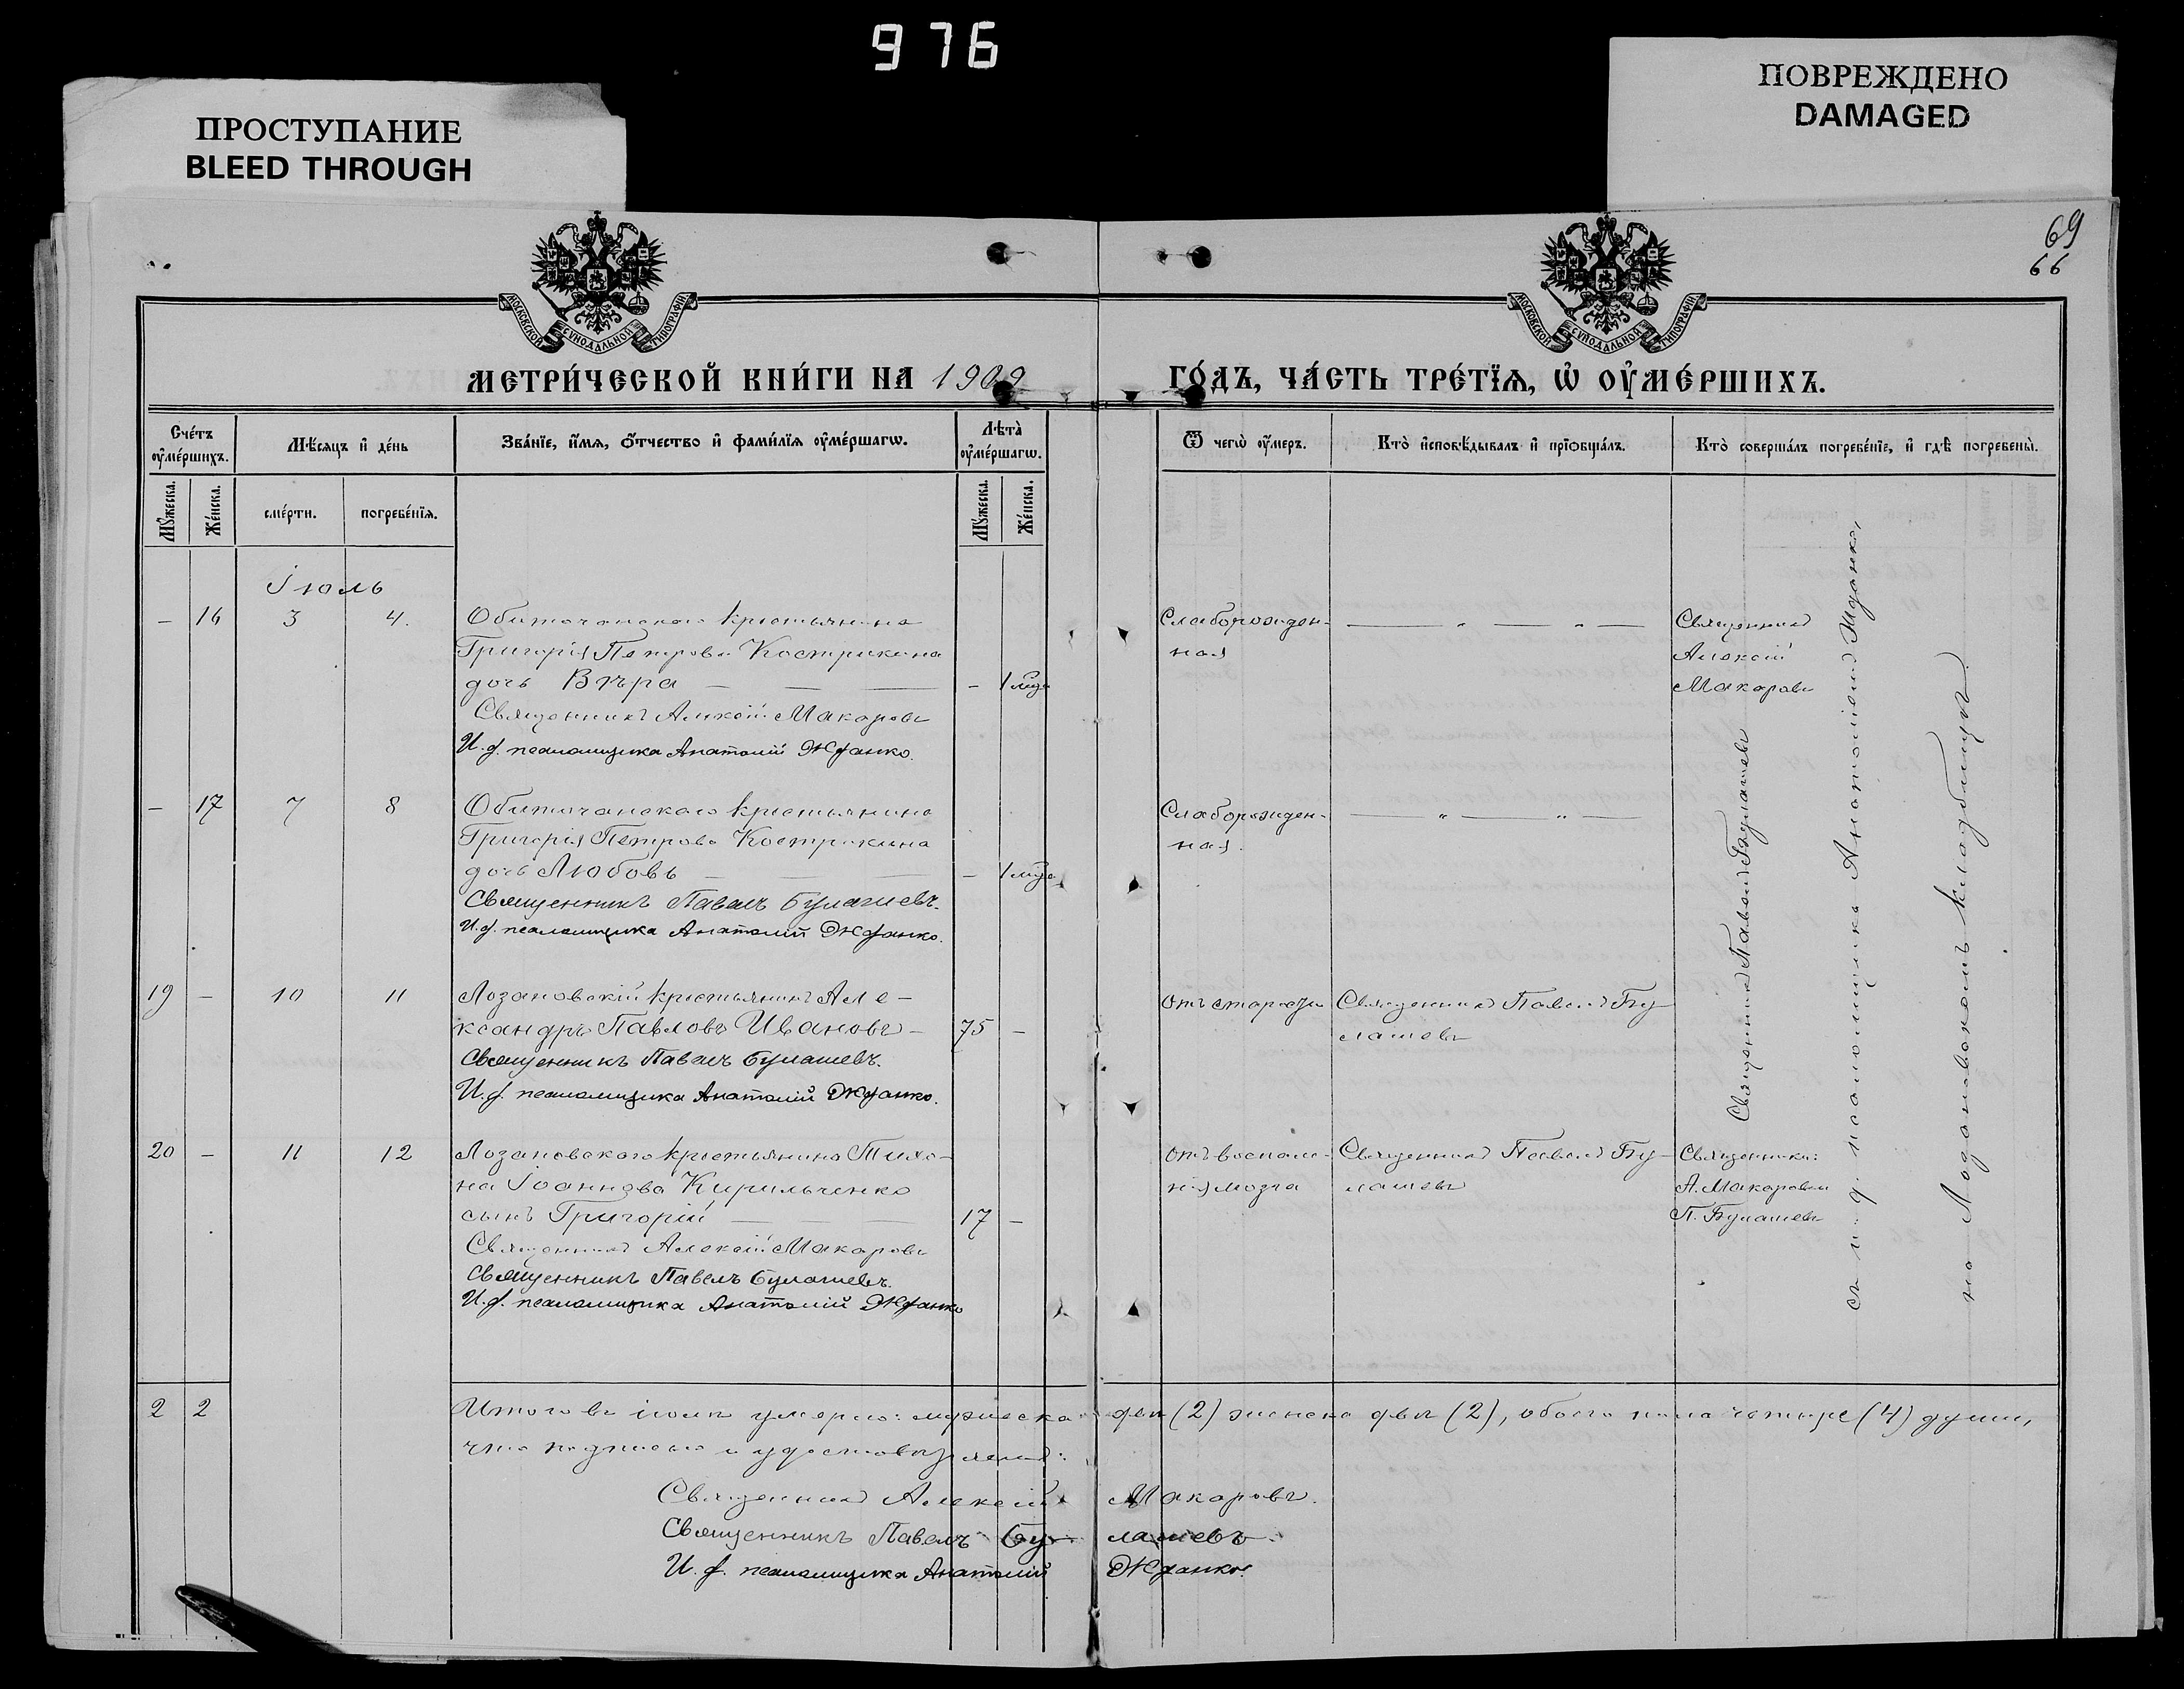 976
ПРОСТУПАНИЕ
BLEED THROUGH
ПОВРЕЖДЕНО
DAMAGED
69
66
МОСКОВСКОЙ СУНОДАЛЬНОЙ ТИПОГРАФІИ
МОСКОВСКОЙ СУНОДАЛЬНОЙ ТИПОГРАФІИ
МЕТРИ́ЧЕСКОЙ КНИ́ГИ НА 1909 ГО́ДЪ, ЧА́СТЬ ТРЕ́ТЇѦ, Ѡ҆ ОУ҆МЕ́РШИХЪ.
Сче́тъ оу҆ме́ршихъ.
Мѣ́сяцъ и҆ де́нь
Зва́нїе, и҆́мѧ, ѻ҆́тчество и҆ фами́лїѧ оу҆ме́ршагѡ.
Лѣта̀ оу҆ме́ршагѡ.
Ѿ чегѡ̀ оу҆́меръ.
Кто̀ и҆сповѣ́дывалъ и҆ прїѡбща́лъ.
Кто̀ соверша́лъ погребе́нїе, и҆ гдѣ̀ погребены̀.
Мꙋ́жеска.
Же́нска.
сме́рти.
погребе́нїѧ.
Мꙋ́жеска.
Же́нска.
Іюль
— 16 3 4. Обиточенскаго крестьянина
Григорія Петрова Кострикина
дочь Вѣра — — — — 1 мѣс.
Священникъ Алексій Макаровъ
И. д. псаломщика Анатолій Жданко.
Слаборожден-
ная
— „ — „ —
Священникъ
Алексій
Макаровъ
— 17 7 8 Обиточенскаго крестьянина
Григорія Петрова Кострикина
дочь Любовь — — — — 1 мѣс.
Священникъ Павелъ Булашевъ.
И. д. псаломщика Анатолій Жданко.
Слаборожден-
ная.
— „ — „ —
19 — 10 11 Лозановскій крестьянинъ Але-
ксандръ Павловъ Ивановъ — 75 —
Священникъ Павелъ Булашевъ.
И. д. псаломщика Анатолій Жданко.
Отъ старости
Священникъ Павелъ Бу-
лашевъ
20 — 11 12 Лозановскаго крестьянина Тихо-
на Іоаннова Кирильченко
сынъ Григорій — — — 17 —
Священникъ Алексій Макаровъ
Священникъ Павелъ Булашевъ.
И. д. псаломщика Анатолій Жданко
Отъ воспале-
нія мозга
Священникъ Павелъ Бу-
лашевъ
Священники:
А. Макаровъ
П. Булашевъ
Священникъ Павелъ Булашевъ
съ и. д. псаломщика Анатоліемъ Жданко,
на Лозановскомъ кладбищѣ.
2 2 Итого въ іюлѣ умерло: мужеска два (2) женска двѣ (2), обоего пола четыре (4) души,
что подписью и удостовѣряемъ:
Священникъ Алексій Макаровъ.
Священникъ Павелъ Булашевъ.
И. д. псаломщика Анатолій Жданко.